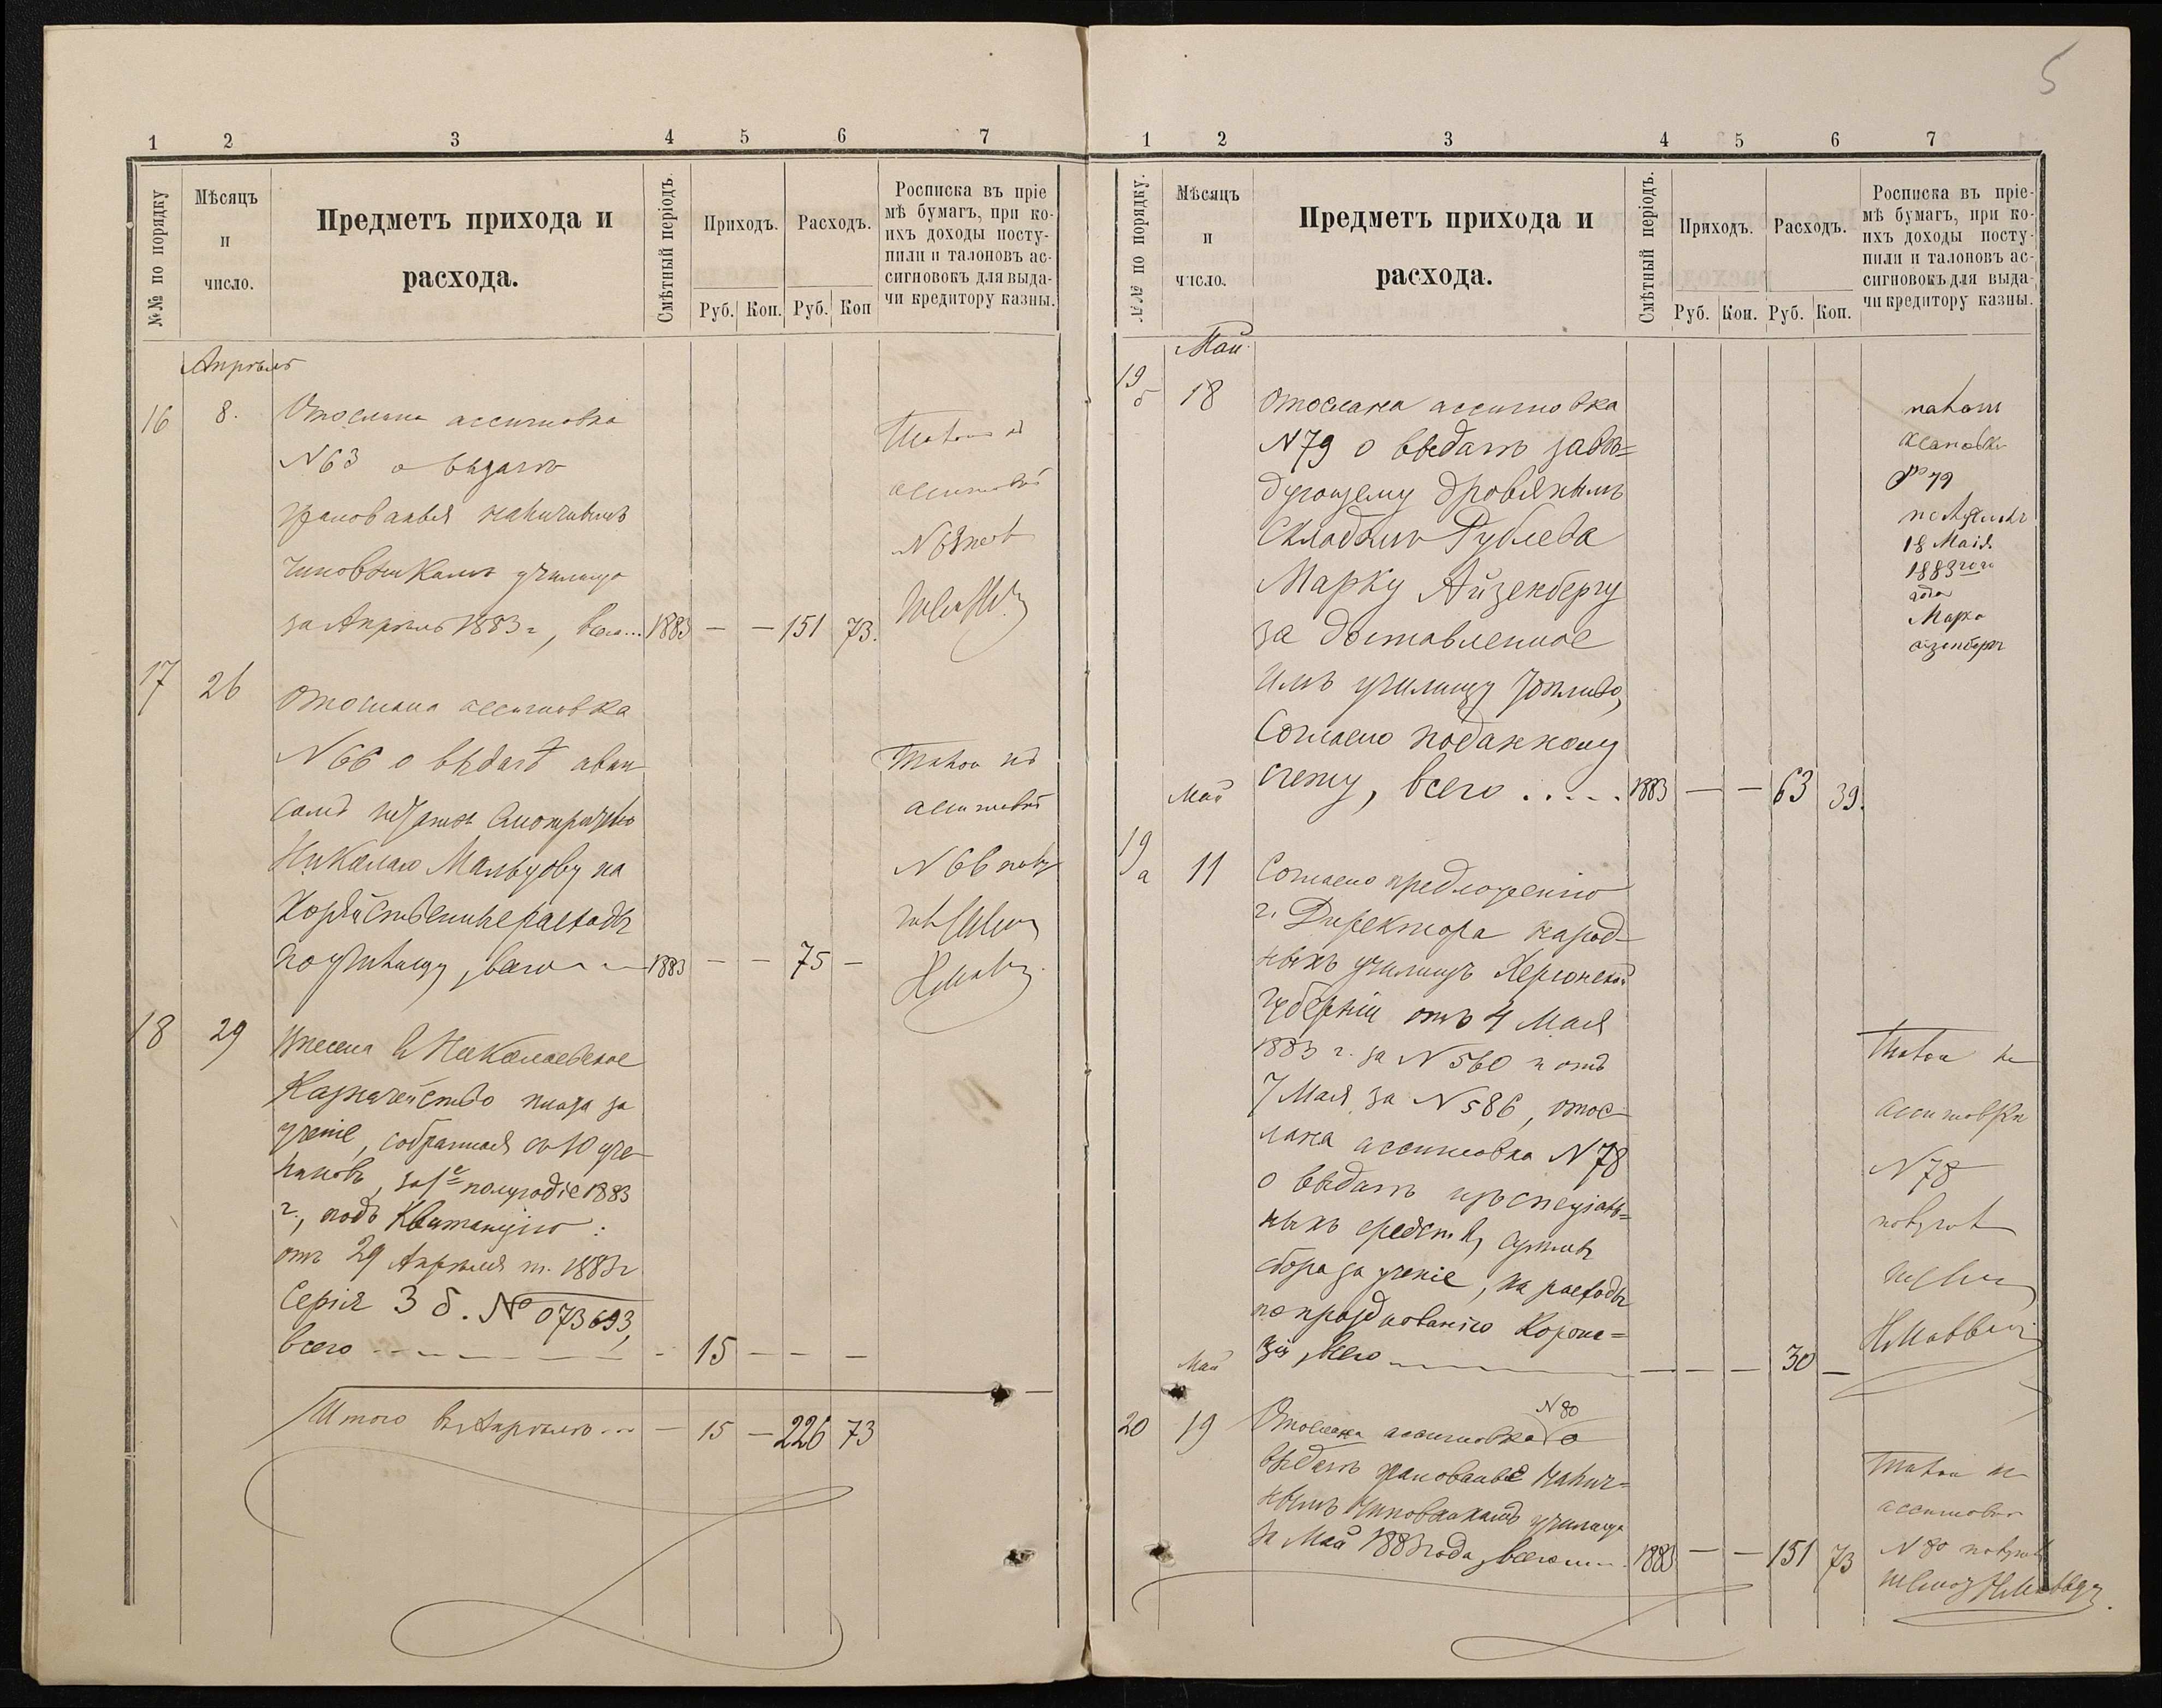 5
1 2 3 4 5 6 7
№№ по порядку
Мѣсяцъ
и
число.
Предметъ прихода и
расхода.
Смѣтный періодъ.
Приходъ. Расходъ.
Руб. Коп. Руб. Коп
Росписка въ пріе
мѣ бумагъ, при ко-
ихъ доходы посту-
пили и талоновъ ас-
сигновокъ для выда-
чи кредитору казны.
Апрѣль
16 8. Отослана ассигновка
N 63 о выдачѣ
жалованья
чиновникамъ училища
за Апрѣль 1883 г, всего... 1883 — — 151 73.
17 26 Отослана ассигновка
N 66 о выдачѣ аван
сомъ смотрителю
Николаю на
Хозяйственные расходы
по училищу, всего 1883 — — 75 —
ассигновкѣ
N 66
18 29 Внесена в Николаевское
Казначейство плата за
ученіе, собранная съ 10 уче-
никовъ, за 1е полугодіе 1883
г., подъ Квитанцію:
отъ 29 Апрѣля т. 1883 г
Серія 3 б. № 073693,
всего — 15 — — —
Итого въ Апрѣлѣ ... — 15 — 226 73
1 2 3 4 5 6 7
№№ по порядку.
Мѣсяцъ
и
число.
Предметъ прихода и
расхода.
Смѣтный періодъ.
Приходъ. Расходъ.
Руб. Коп. Руб. Коп.
Росписка въ пріе-
мѣ бумагъ, при ко-
ихъ доходы посту-
пили и талоновъ ас-
сигновокъ для выда-
чи кредитору казны.
Май
19 б 18 Отослана ассигновка
N 79 о выдачѣ завѣ=
дующему дровянымъ
Складомъ Рублева
Марку Айзенбергу
за доставленное
имъ училищу топливо,
Согласно поданному
счету, всего . . . . . 1883 — — 63 39.
№ 79
18 Маія
1883 года
Марка
Май
19 а 11 Согласно предложенію
г. Директора народ-
ныхъ училищъ Херсонской
губерніи отъ 4 Мая
1883 г. за N 560 и отъ
7 Мая за N 586, отос-
лана ассигновка N 78
о выдачѣ изъ спеціаль=
ныхъ средствъ, суммы
сбора за ученіе, на расходы
по празднованію Корона=
ціи, всего — — — 30 —
ассигновки
N 78
Май
20 19 Отослана ассигновка N 80 о
выдачѣ жалованья
нымъ чиновникамъ училища
за Май 1883 года, всего 1883 — — 151 73
ассигновки
N 80